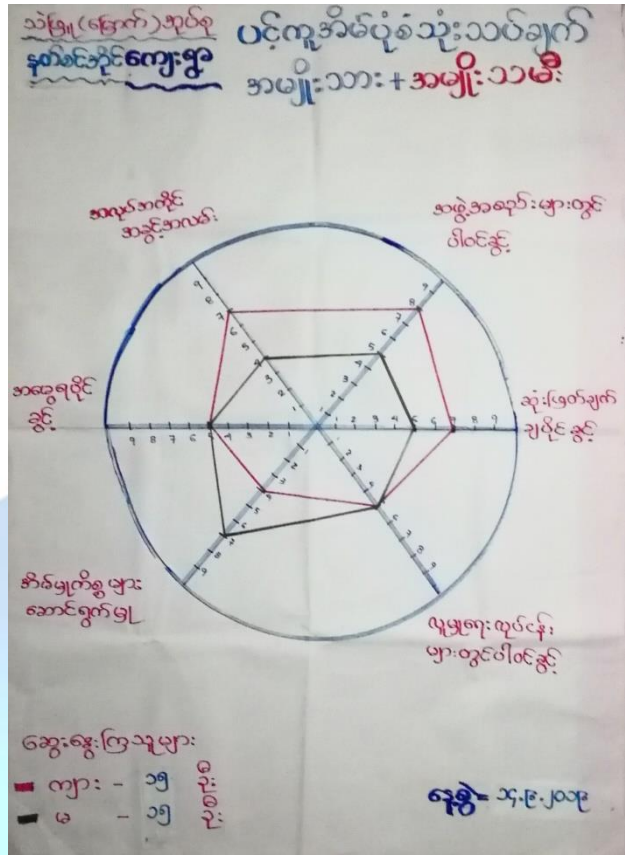 သဲဖြူ(မြောက်)အုပ်စု
နတ်စင်အိုင်ကျေးရွာ
ပင့်ကူအိမ်ပုံစံသုံးသပ်ချက်
အမျိုးသား+အမျိုးသမီး
အလုပ်အကိုင်
အခွင့်အလမ်း
အဖွဲ့အစည်းများတွင်
ပါဝင်ခွင့်
အမွေရပိုင်
ခွင့်
ဆုံးဖြတ်ချက်
ချပိုင်ခွင့်
အိမ်မှုကိစ္စများ
ဆောင်ရွက်မှု
လူမှုရေးလုပ်ငန်း
များတွင်ပါဝင်ခွင့်
ဆွေးနွေးကြသူများ
ကျား - ၁၅ ဦး
မ - ၁၅ ဦး
နေ့စွဲ = ၁၄.၉.၂၀၁၉